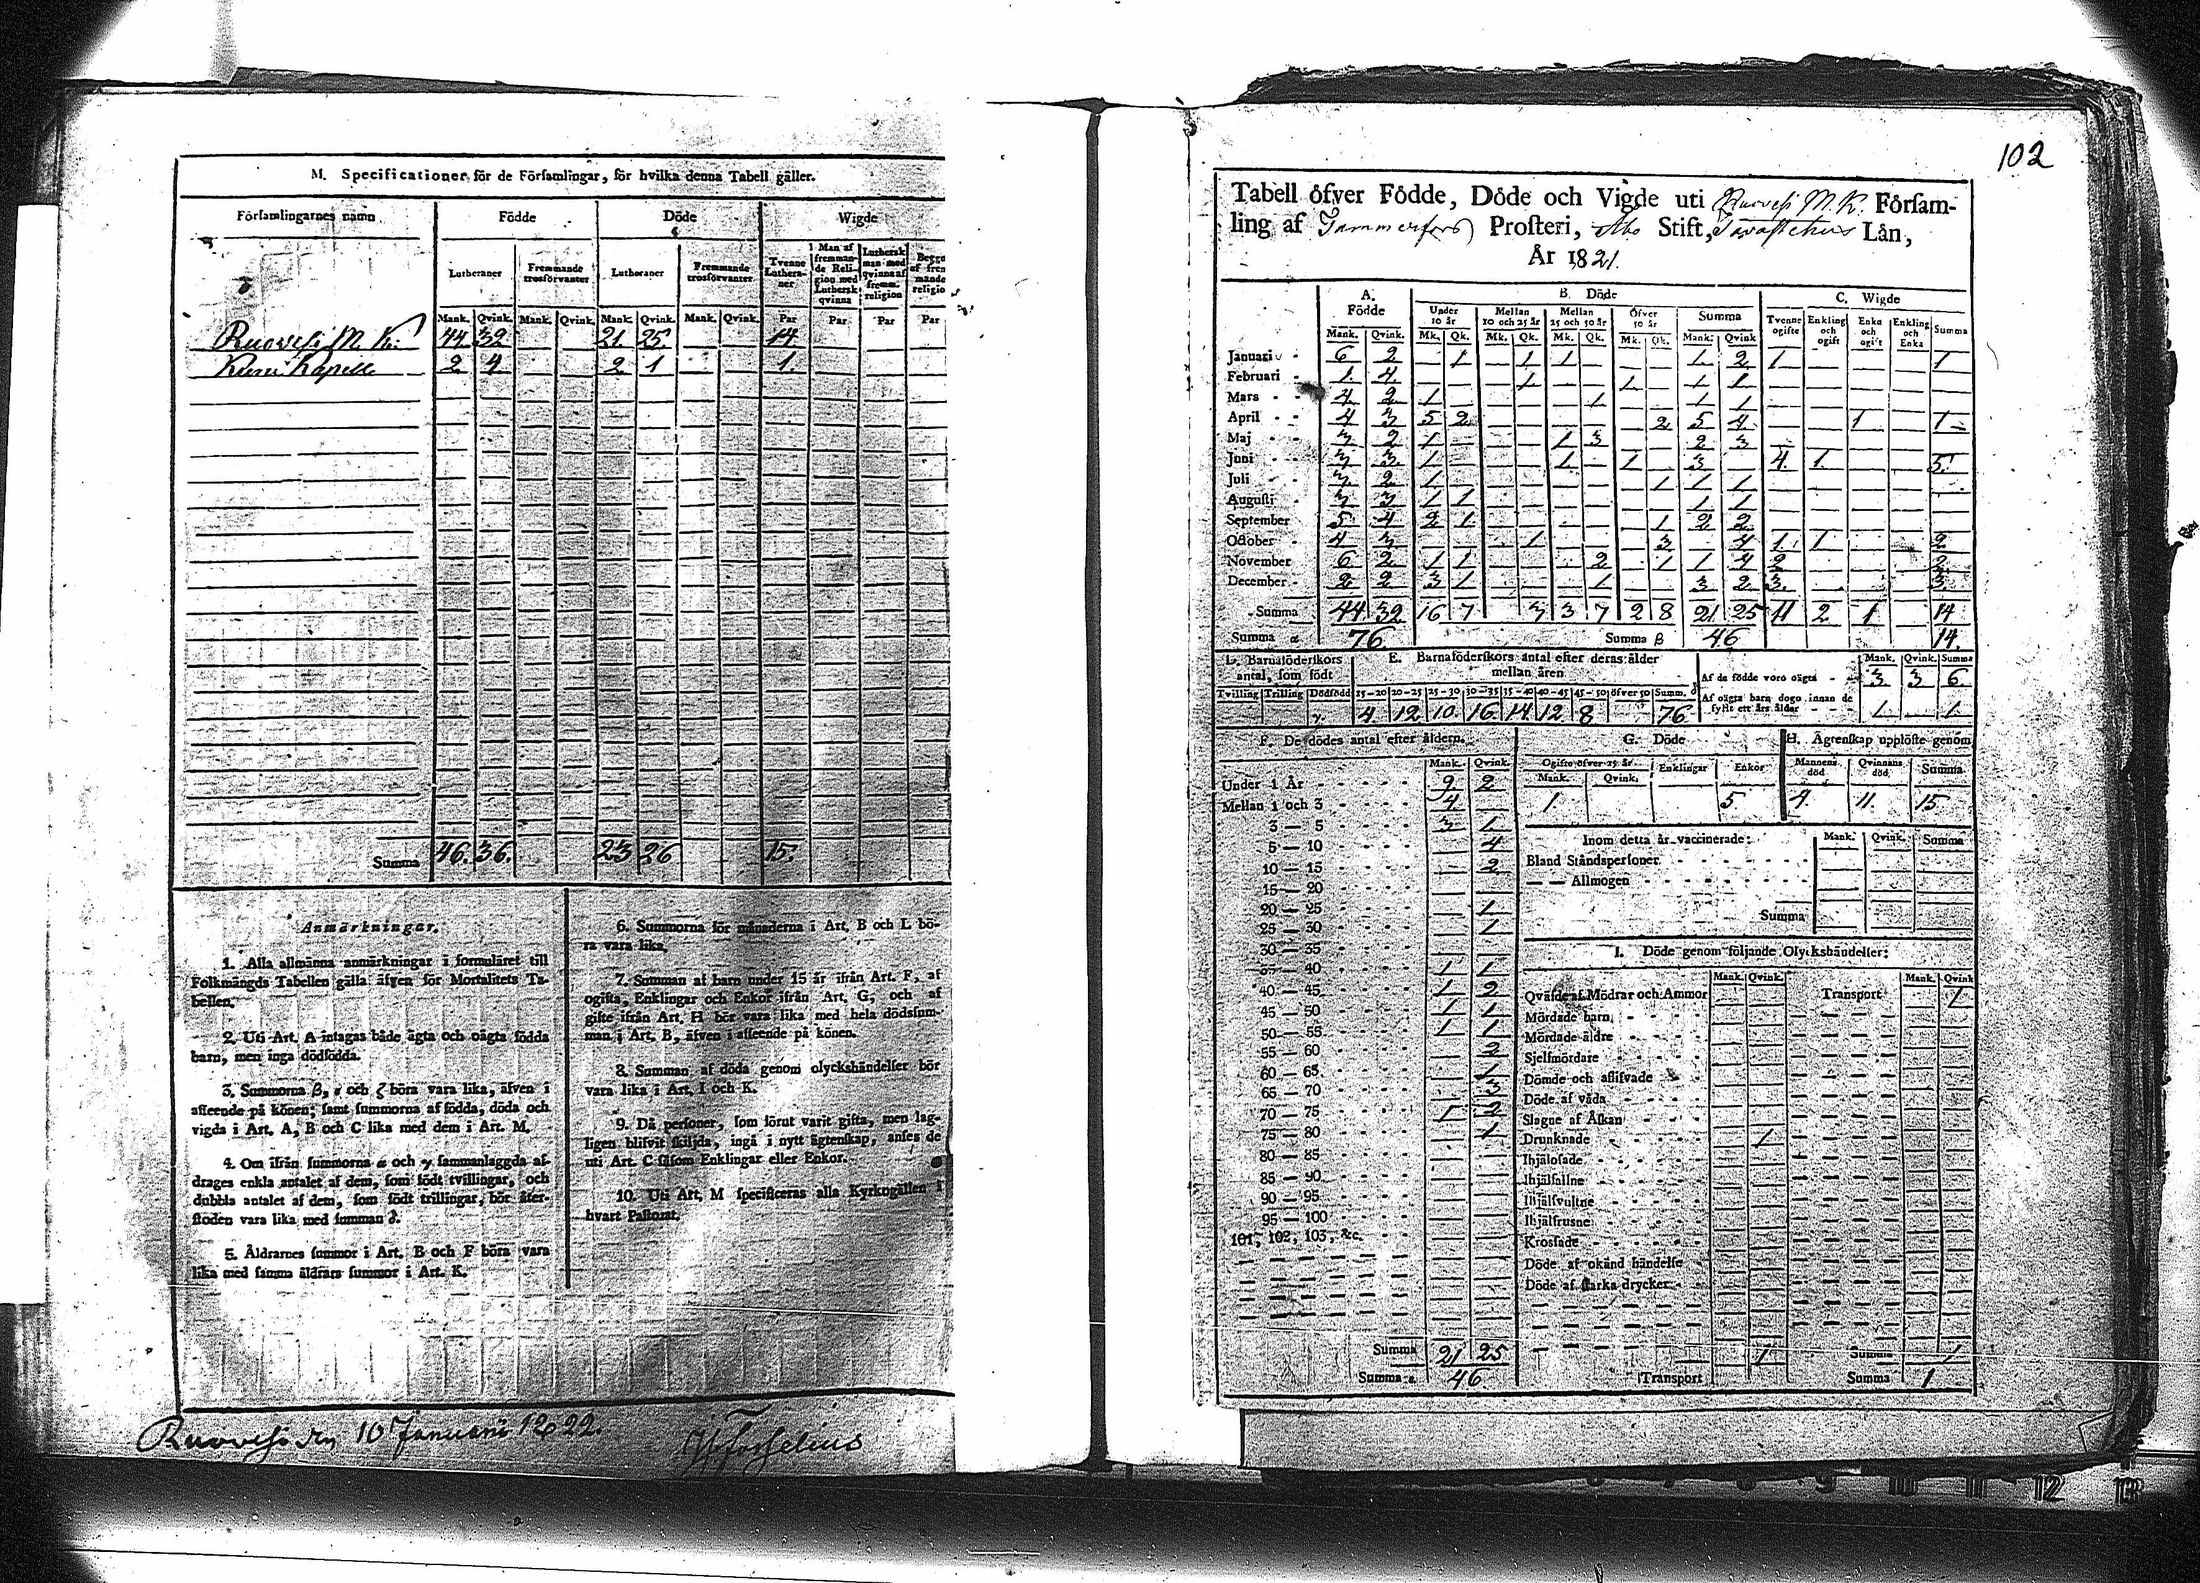 M. Specificationer för de Församlingar, för hvilka denna Tabell gäller.
Församlingarnes namn Födde Döde Wigde
Lutheraner Fremmande trosförvanter Lutheraner Fremmande trosförvanter Tvenne Lutheraner 1 Man af fremmande Religion med Luthersk qvinna Luthersk man med qvinna af fremm: religion
Mank. Qvink. Mank. Qvink. Mank. Qvink. Mank. Qvink. Par Par Par Par
Ruovesi M. K: 44 32 21 25 14
Kuru Kapell 2 4 2 1 1.
Summa 46. 36. 23 26 15.
Anmärkningar.
1. Alla allmänna anmärkningar i formuläret till
Folkmängds Tabellen gälla äfven för Mortalitets Ta-
bellen.
2. Uti Art. A intagas både ägta och oägta födda
barn, men inga dödfödda.
3. Summorna β, ε och ζ böra vara lika, äfven i
afseende på könen; samt summorna af födda, döda och
vigda i Art. A, B och C lika med dem i Art. M.
4. Om ifrån summorna α och γ sammanlaggda af-
drages enkla antalet af dem, som födt tvillingar, och
dubbla antalet af dem, som födt trillingar, bör åter-
stoden vara lika med summan δ.
5. Åldrarnes summor i Art. B och F böra vara
lika med samma åldrars summor i Art. K.
6. Summorna för månaderna i Art. B och L bö-
ra vara lika.
7. Summan af barn under 15 år ifrån Art. F, af
ogifta, Enklingar och Enkor ifrån Art. G, och af
gifte ifrån Art. H bör vara lika med hela dödsum-
man i Art. B, äfven i afseende på könen.
8. Summan af döda genom olyckshändelser bör
vara lika i Art. I och K.
9. Då personer, som förut varit gifta, men lag-
ligen blifvit skiljda, ingå i nytt ägtenskap, anses de
uti Art. C såsom Enklingar eller Enkor.
10. Uti Art. M specificeras alla Kyrkogällen i
hvart Pastorat.
Ruovesi den 10 Januarii 1822.
102
Tabell öfver Födde, Döde och Vigde uti Ruovesi M. K. Försam-
ling af Tammerfors Prosteri, Åbo Stift, Tavastehus Län,
År 1821.
A. Födde B. Döde C. Wigde
Under 10 år Mellan 10 och 25 år Mellan 25 och 50 år Öfver 50 år Summa Tvenne ogifte Enkling och ogift Enka och ogift Enkling och Enka Summa
Mank. Qvink. Mk. Qk. Mk. Qk. Mk. Qk. Mk. Qk. Mank: Qvink
Januari 6 2 1 1 1 1 2 1 1
Februari 1 4 1 1 1 1
Mars 4 2 1 1 1 1
April 4 3 5 2 2 5 4 1 1
Maj 3 2 1 1 3 2 3
Juni 3 3 1 1 1 3 4 1 5
Juli 3 2 1 1 1 1
Augusti 3 3 1 1 1 1
September 5 4 2 1 1 2 2
October 4 3 1 3 4 1 1 2
November 6 2 1 1 2 1 1 4 2 2
December 2 2 3 1 1 3 2 3 3
Summa 44 32 16 7 3 3 7 2 8 21 25 11 2 1 14
Summa α 76. Summa β 46 14.
D. Barnaföderskors antal, som födt
E. Barnaföderskors antal efter deras ålder mellan åren
Mank. Qvink. Summa
Tvilling Trilling Dödfödd 15-20 20-25 25-30 30-35 35-40 40-45 45-50 öfver 50 Summ. δ
4. 12 10 16 14 12 8 76
Af de födde voro oägta 3 3 6
Af oägta barn dogo innan de
fyllt ett års ålder 1 1
F. De dödes antal efter åldern.
Mank. Qvink.
Under 1 År 9 2
Mellan 1 och 3 4
3 — 5 3 1
5 — 10 4
10 — 15 2
15 — 20
20 — 25 1
25 — 30 1
30 — 35
35 — 40 1 1
40 — 45 1 2
45 — 50 1 1
50 — 55 1 1
55 — 60 2
60 — 65 1
65 — 70 3
70 — 75 1 2
75 — 80 1
80 — 85
85 — 90
90 — 95
95 — 100
101, 102, 103, &c.
Summa 21 25
Summa ε 46.
G. Döde
Ogifte öfver 15 år Enklingar Enkor
Mank. Qvink.
1. 5.
H. Ägtenskap upplöste genom
Mannens död Qvinnans död Summa
4. 11. 15
Inom detta år vaccinerade: Mank. Qvink. Summa
Bland Ståndspersoner
— — Allmogen
Summa
I. Döde genom följande Olyckshändelser:
Mank. Qvink. Mank. Qvink
Qväfde af Mödrar och Ammor Transport 1
Mördade barn
Mördade äldre
Sjelfmördare
Dömde och aflifvade
Döde af våda
Slagne af Åskan
Drunknade 1
Ihjälsofade
Ihjälfallne
Ihjälsvultne
Ihjälfrusne
Krossade
Döde af okänd händelse
Döde af starka drycker
1 Summa 1
Transport Summa 1